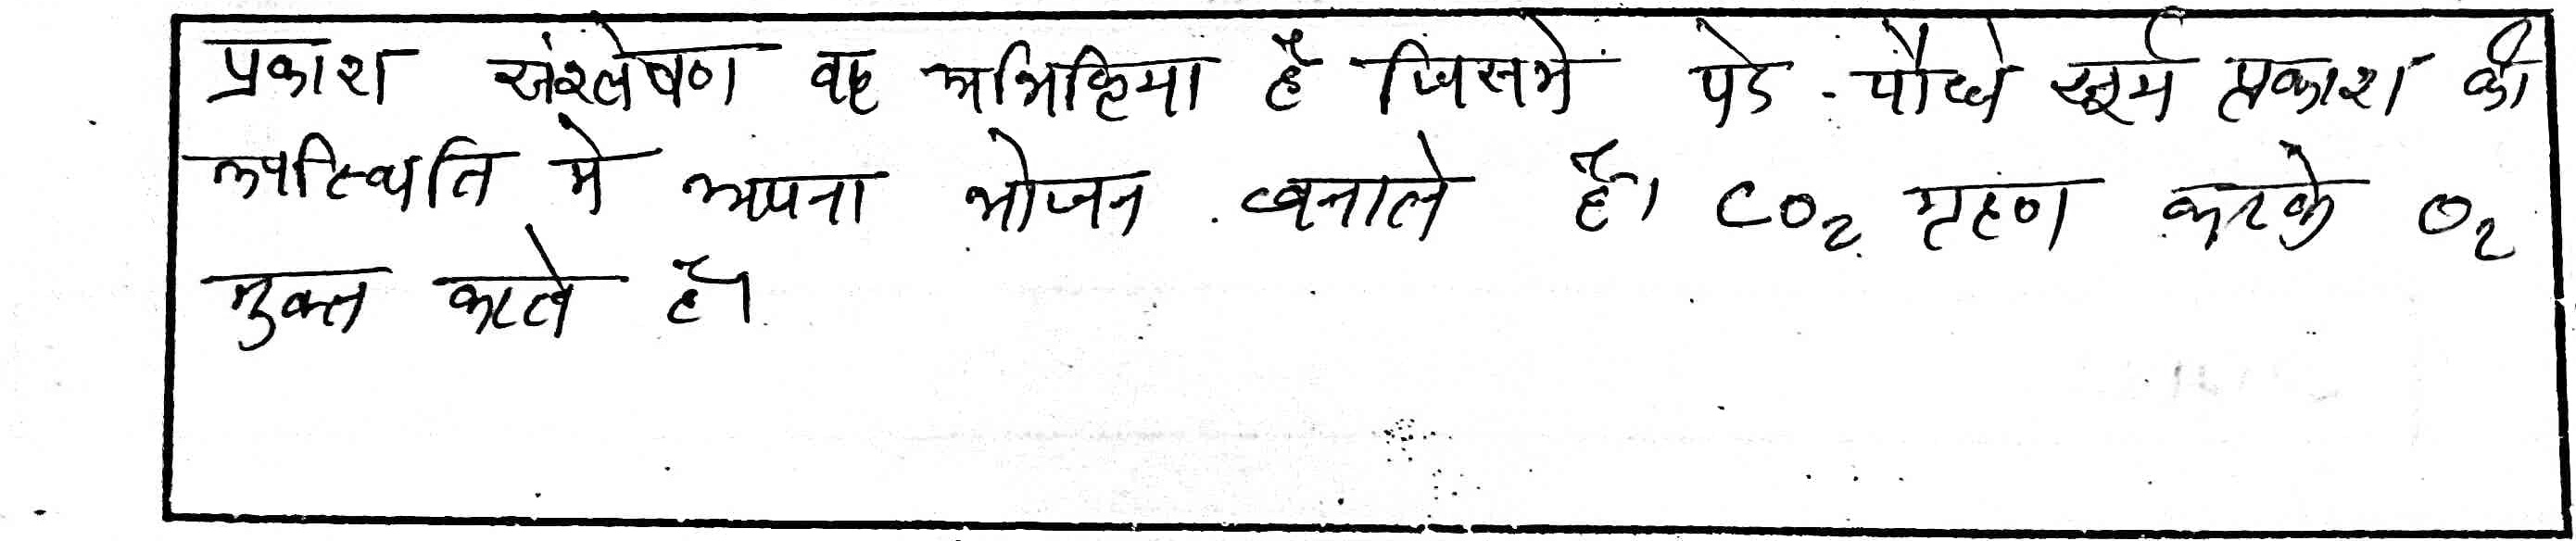 प्रकाश संश्लेषण वह अभिक्रिया है जिसमे पेड-पौधे सूर्य प्रकाश की
उपस्थिति मे अपना भोजन बनाते है। CO₂ ग्रहण करके O₂
मुक्त करते है।